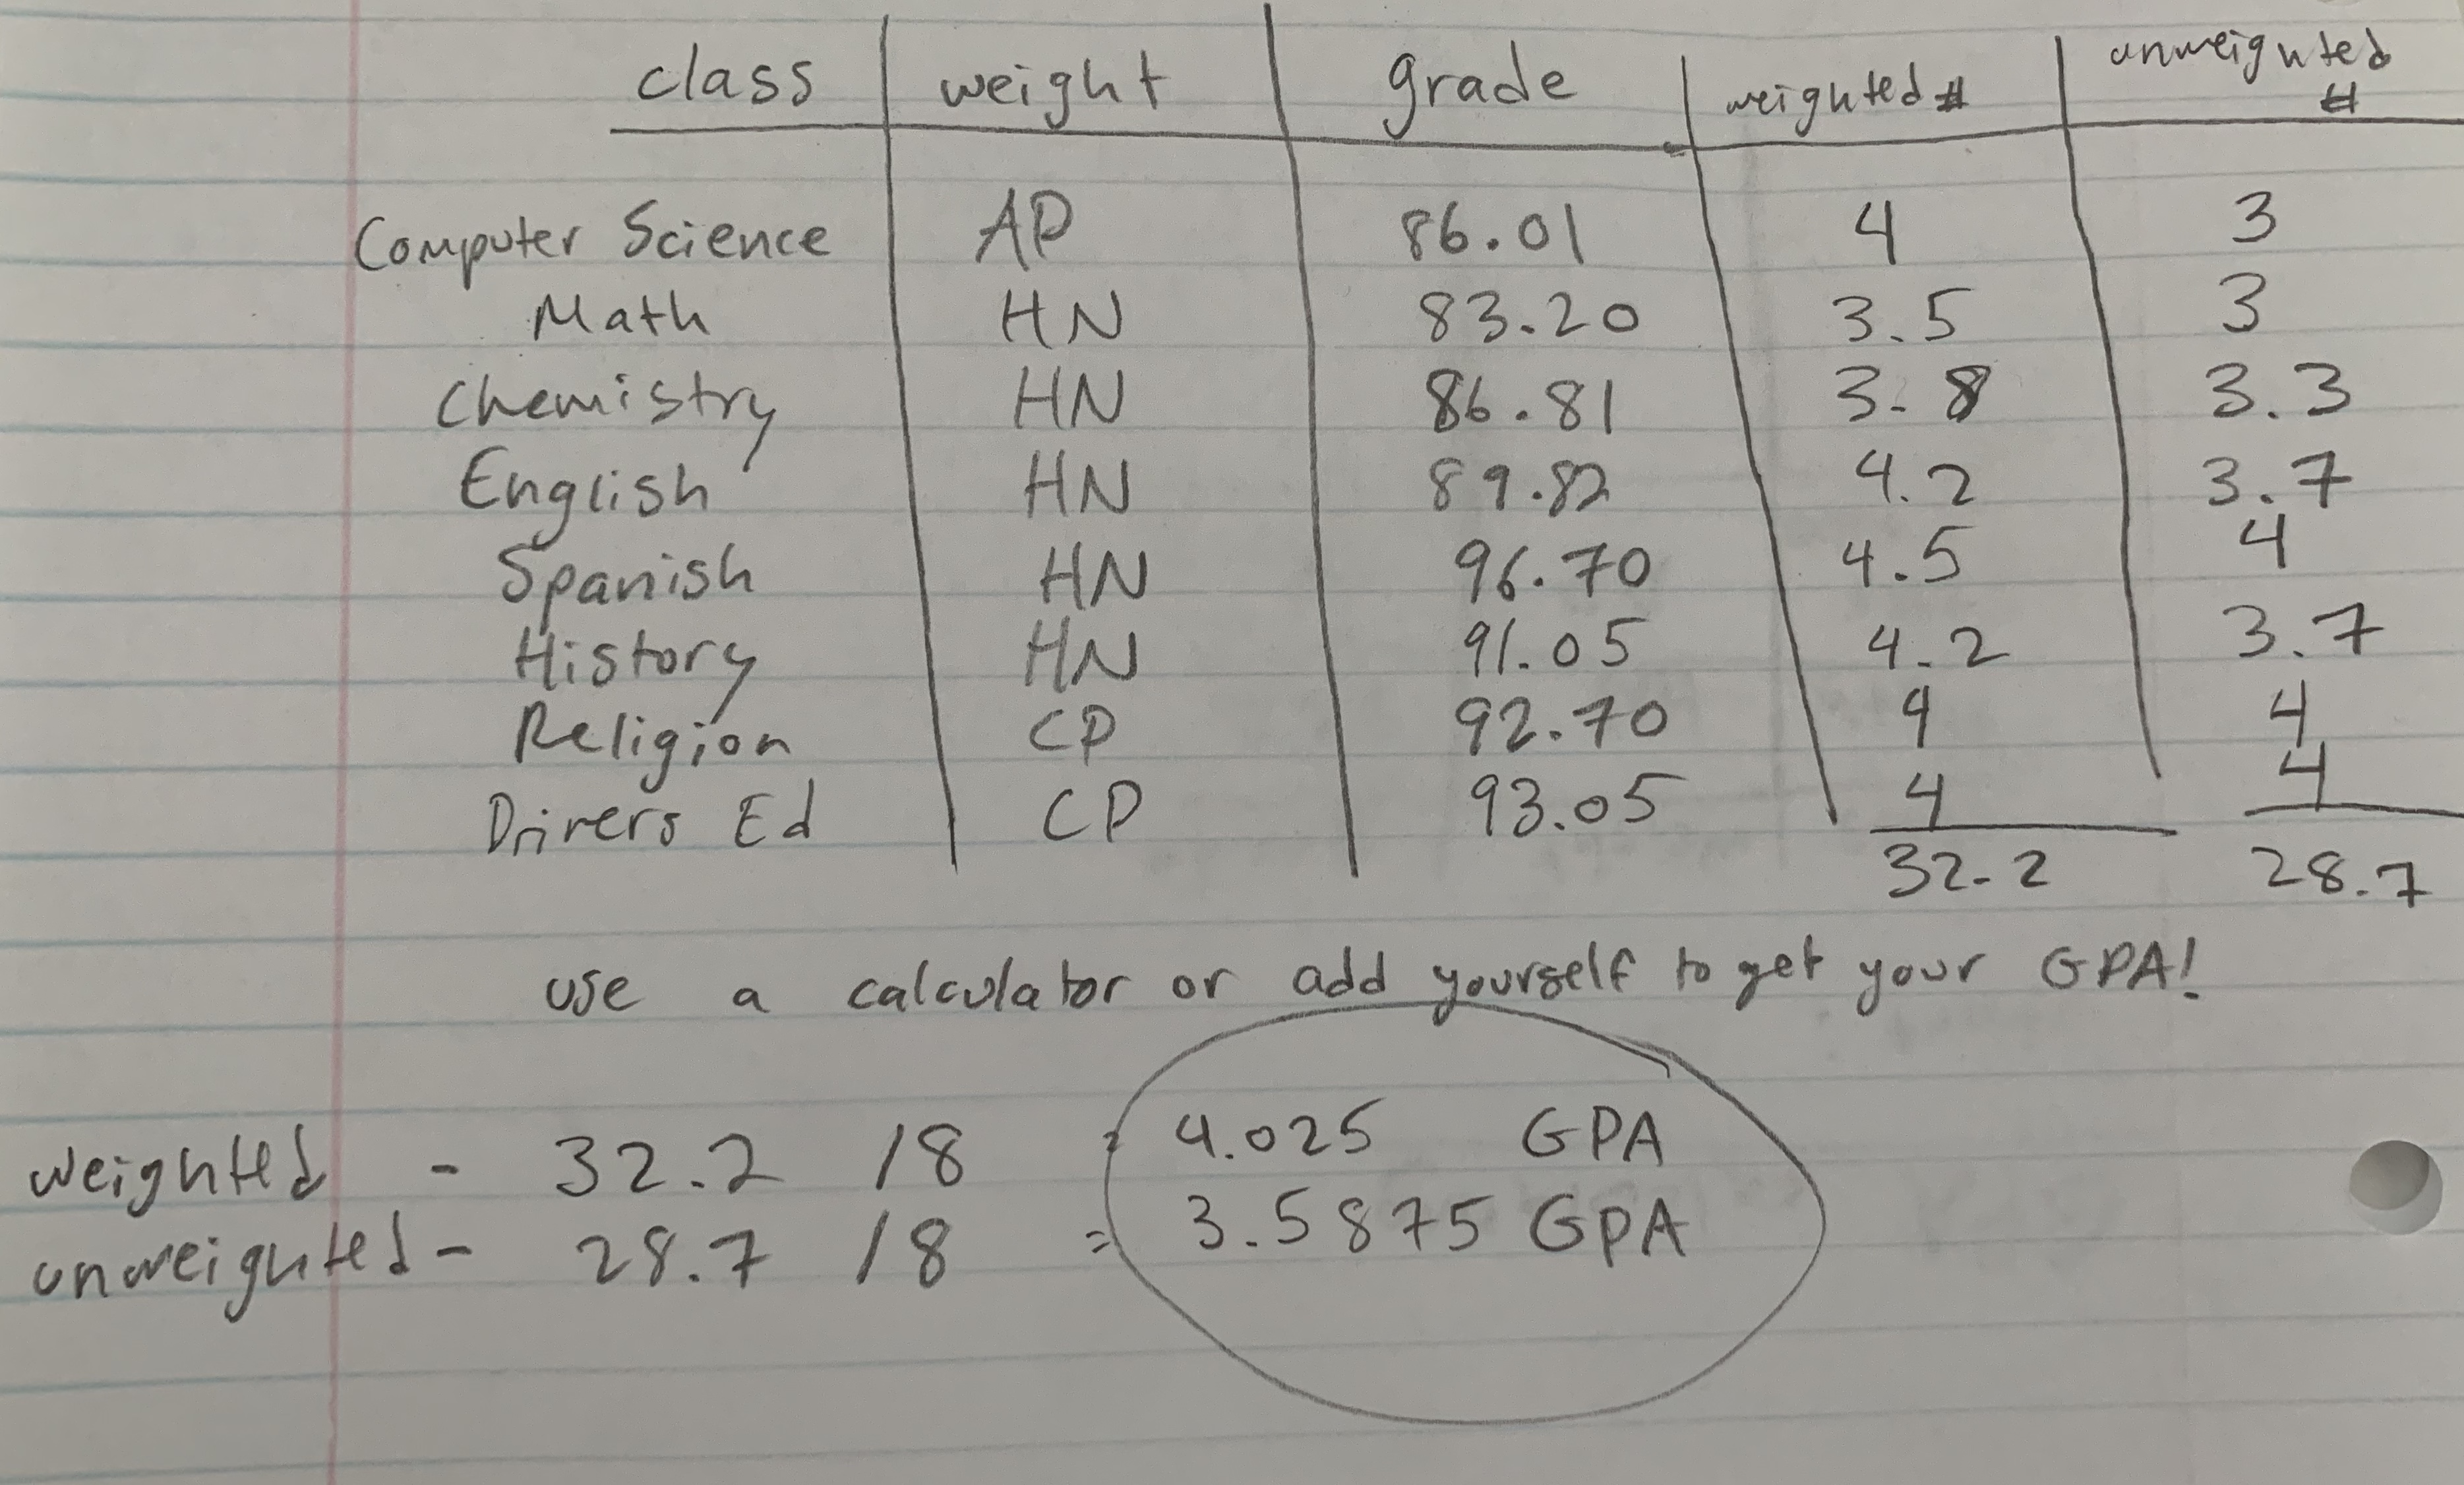 class weight grade weighted # unweighted #
Computer Science AP 86.01 4 3
Math HN 83.20 3.5 3
Chemistry HN 86.81 3.8 3.3
English HN 89.82 4.2 3.7
Spanish HN 96.70 4.5 4
History HN 91.05 4.2 3.7
Religion CP 92.70 4 4
Drivers Ed CP 93.05 4 4
32.2 28.7
use a calculator or add yourself to get your GPA!
weighted - 32.2 /8 = 4.025 GPA
unweighted - 28.7 /8 = 3.5875 GPA